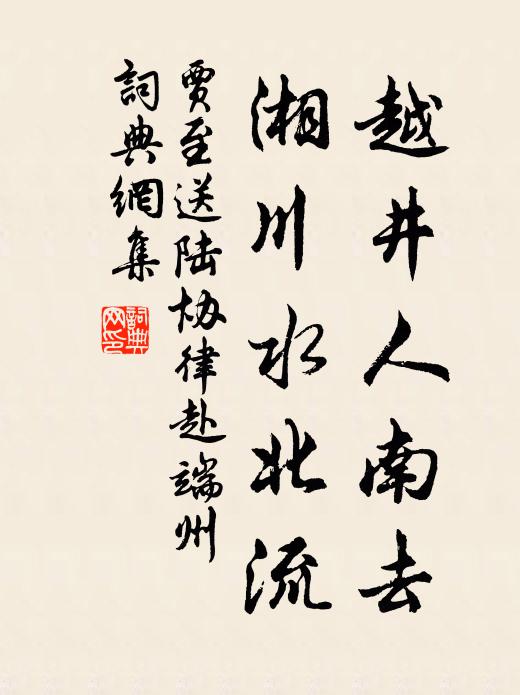 越井人南去
湘川水北流
贾至送陆协律赴端州
詞典網集
詞典网印